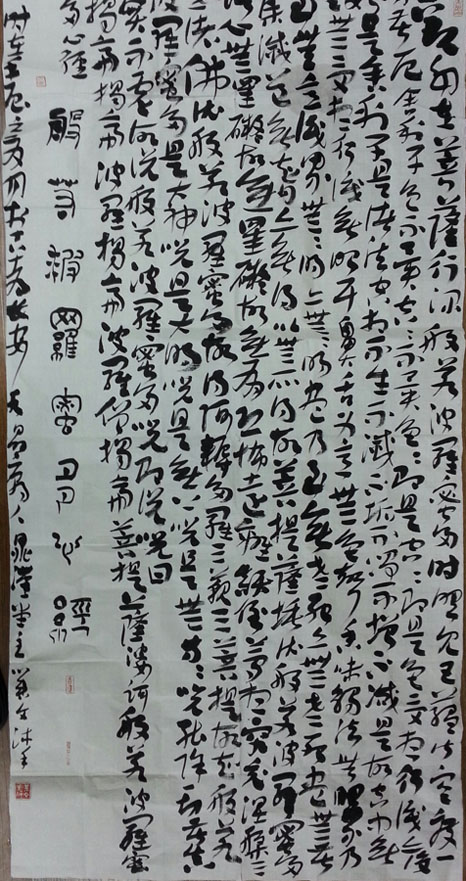 觀自在菩薩行深般若波羅蜜多時照見五蘊皆空度一
切苦厄舍利子色不異空空不異色色即是空空即是色受想行識復
如是舍利子是諸法空相不生不滅不垢不淨不增不減是故空中無
色無受想行識無眼耳鼻舌身意無色聲香味觸法無眼界乃
至無意識界無無明亦無無明盡乃至無老死亦無老死盡無苦
集滅道無智亦無得以無所得故菩提薩埵依般若波羅蜜多
故心無罣礙無罣礙故無有恐怖遠離顛倒夢想究竟涅槃三
世諸佛依般若波羅蜜多故得阿耨多羅三藐三菩提故知般若
波羅蜜多是大神咒是大明咒是無上咒是無等等咒能除一切苦真
實不虛故說般若波羅蜜多咒即說咒曰
揭帝揭帝波羅揭帝波羅僧揭帝菩提薩婆訶般若波羅蜜
多心經
般若波羅蜜多心經
時在壬辰之夏月於長安